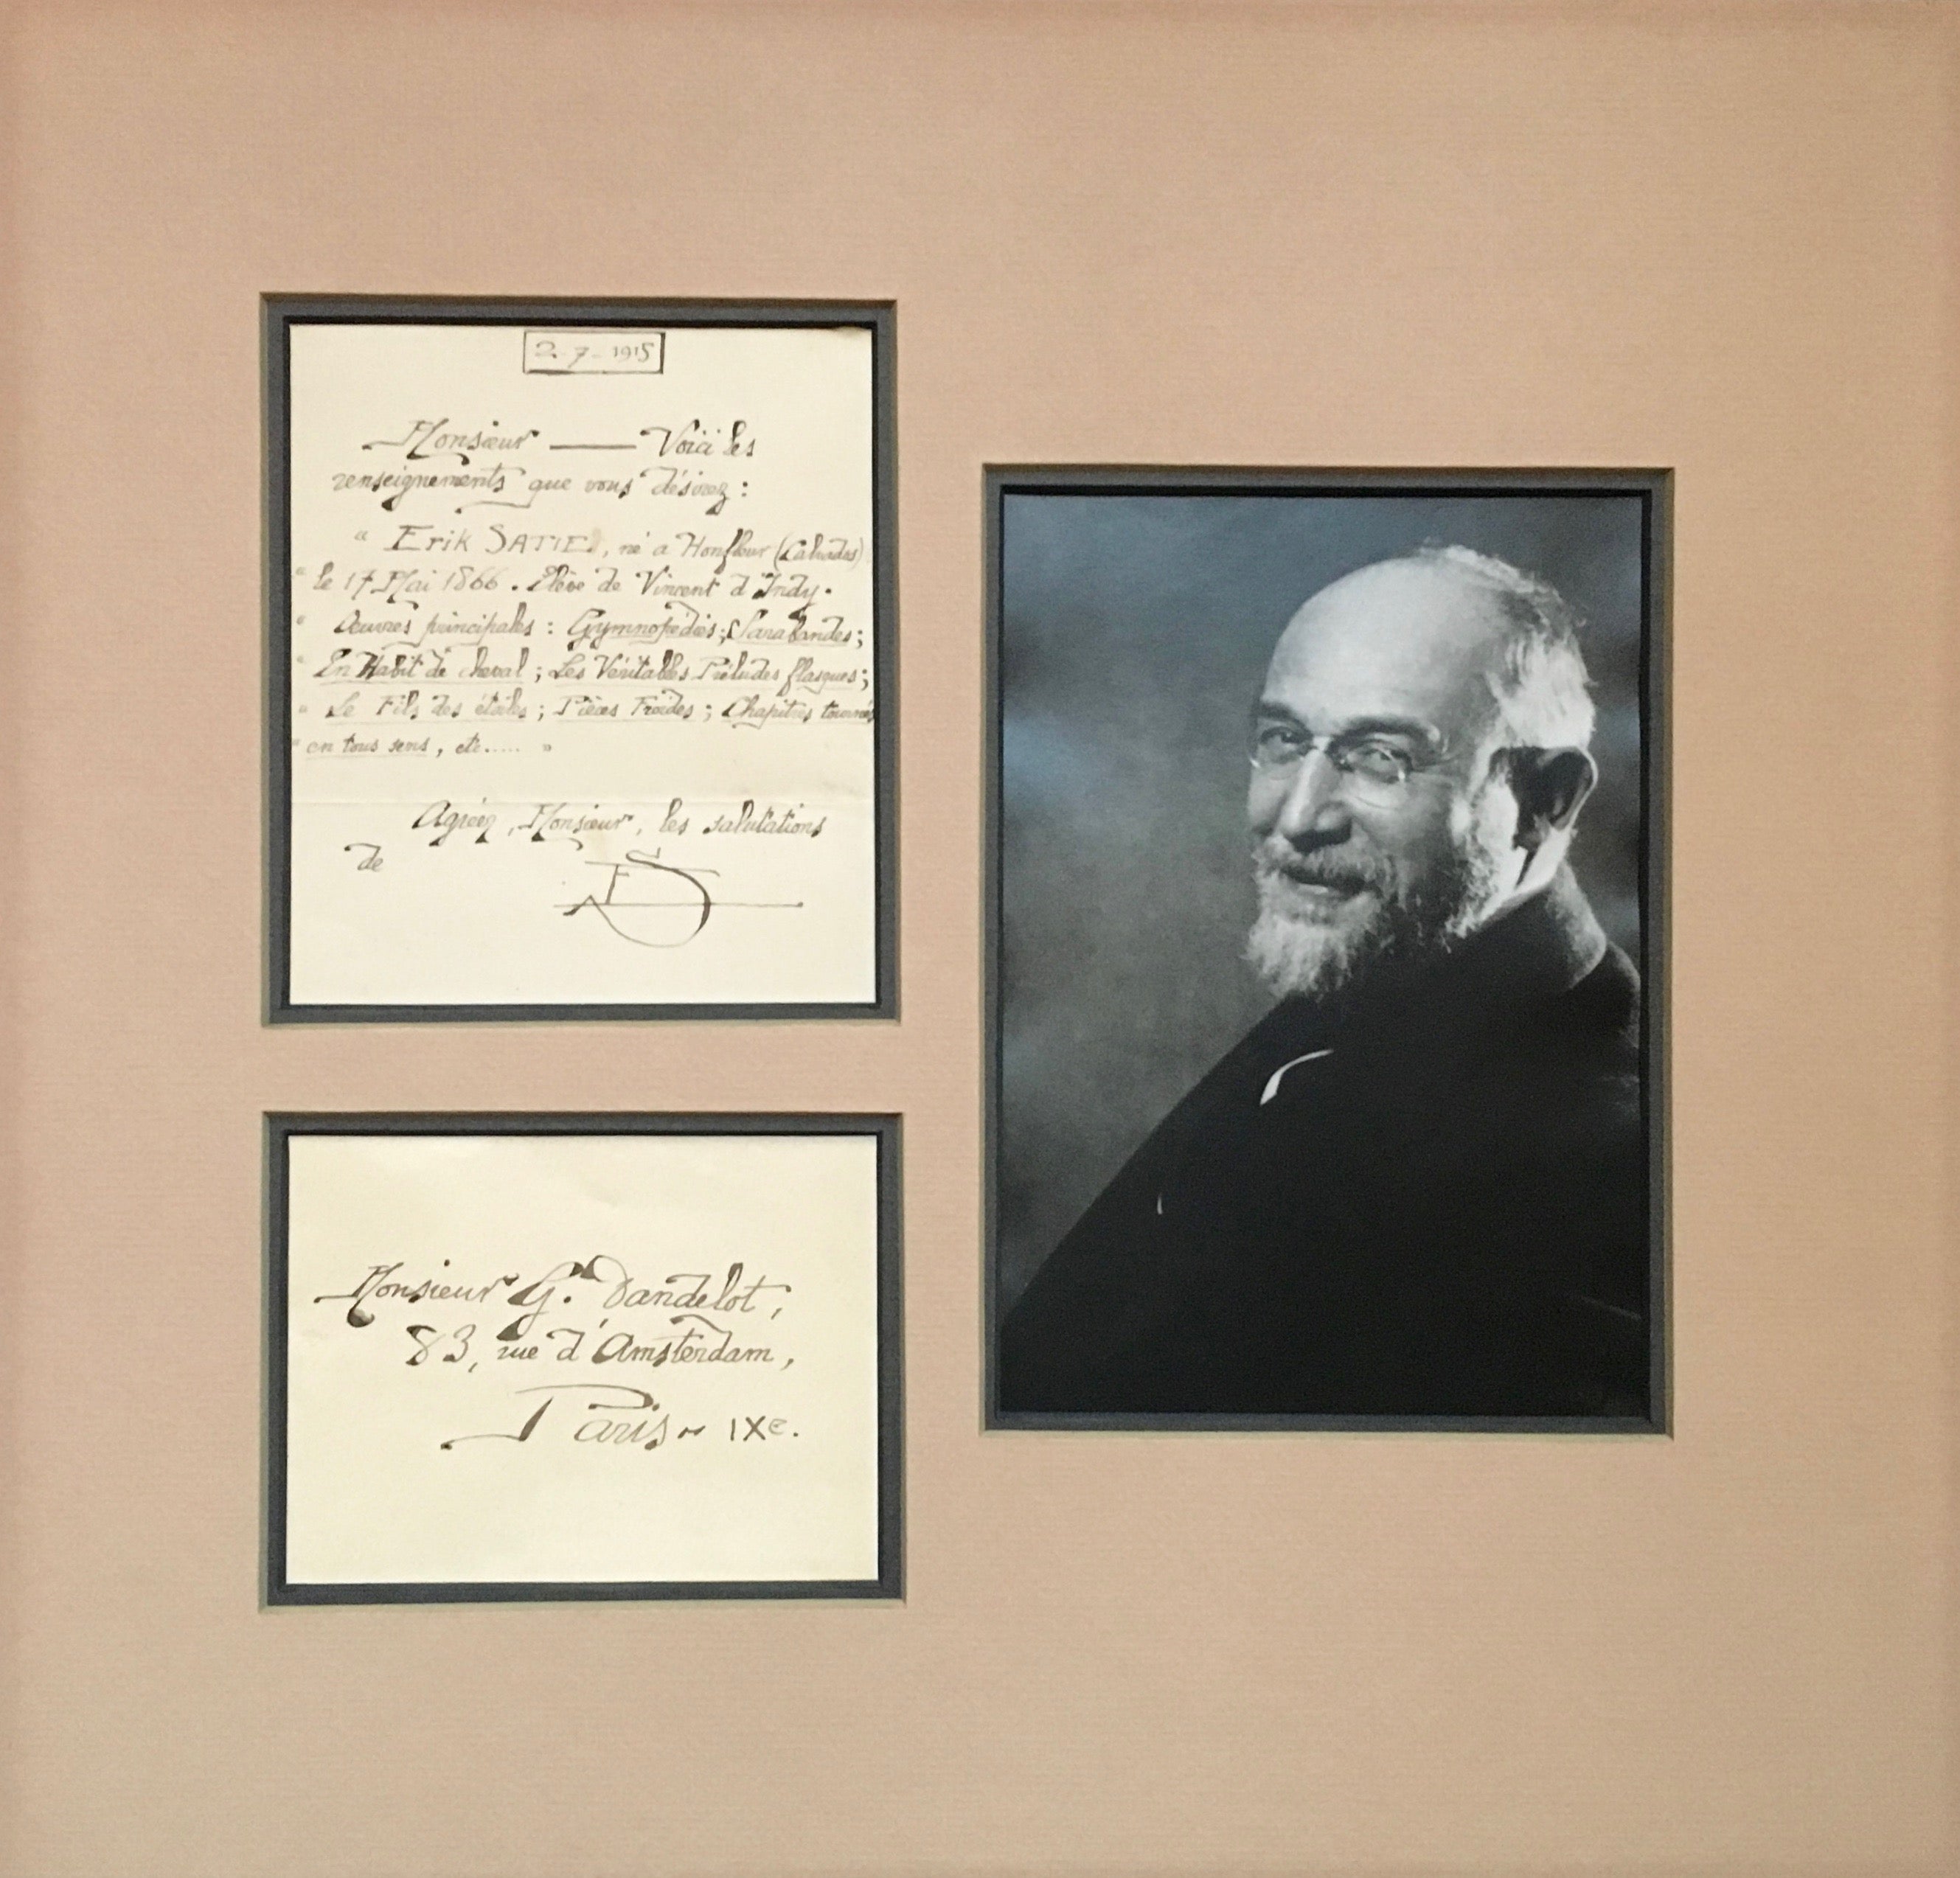 2-7-1915
Monsieur —— Voici les
renseignements que vous désirez :
" Erik SATIE, né à Honfleur (Calvados)
" le 17 Mai 1866. Élève de Vincent d'Indy.
" Œuvres principales : Gymnopédies ; Sarabandes ;
" En Habit de cheval ; Les Véritables Préludes flasques ;
" Le Fils des étoiles ; Pièces Froides ; Chapitres tournés
" en tous sens, etc..... "
Agréez, Monsieur, les salutations
de
ES
Monsieur G. Dandelot,
83, rue d'Amsterdam,
Paris ~ IXe.